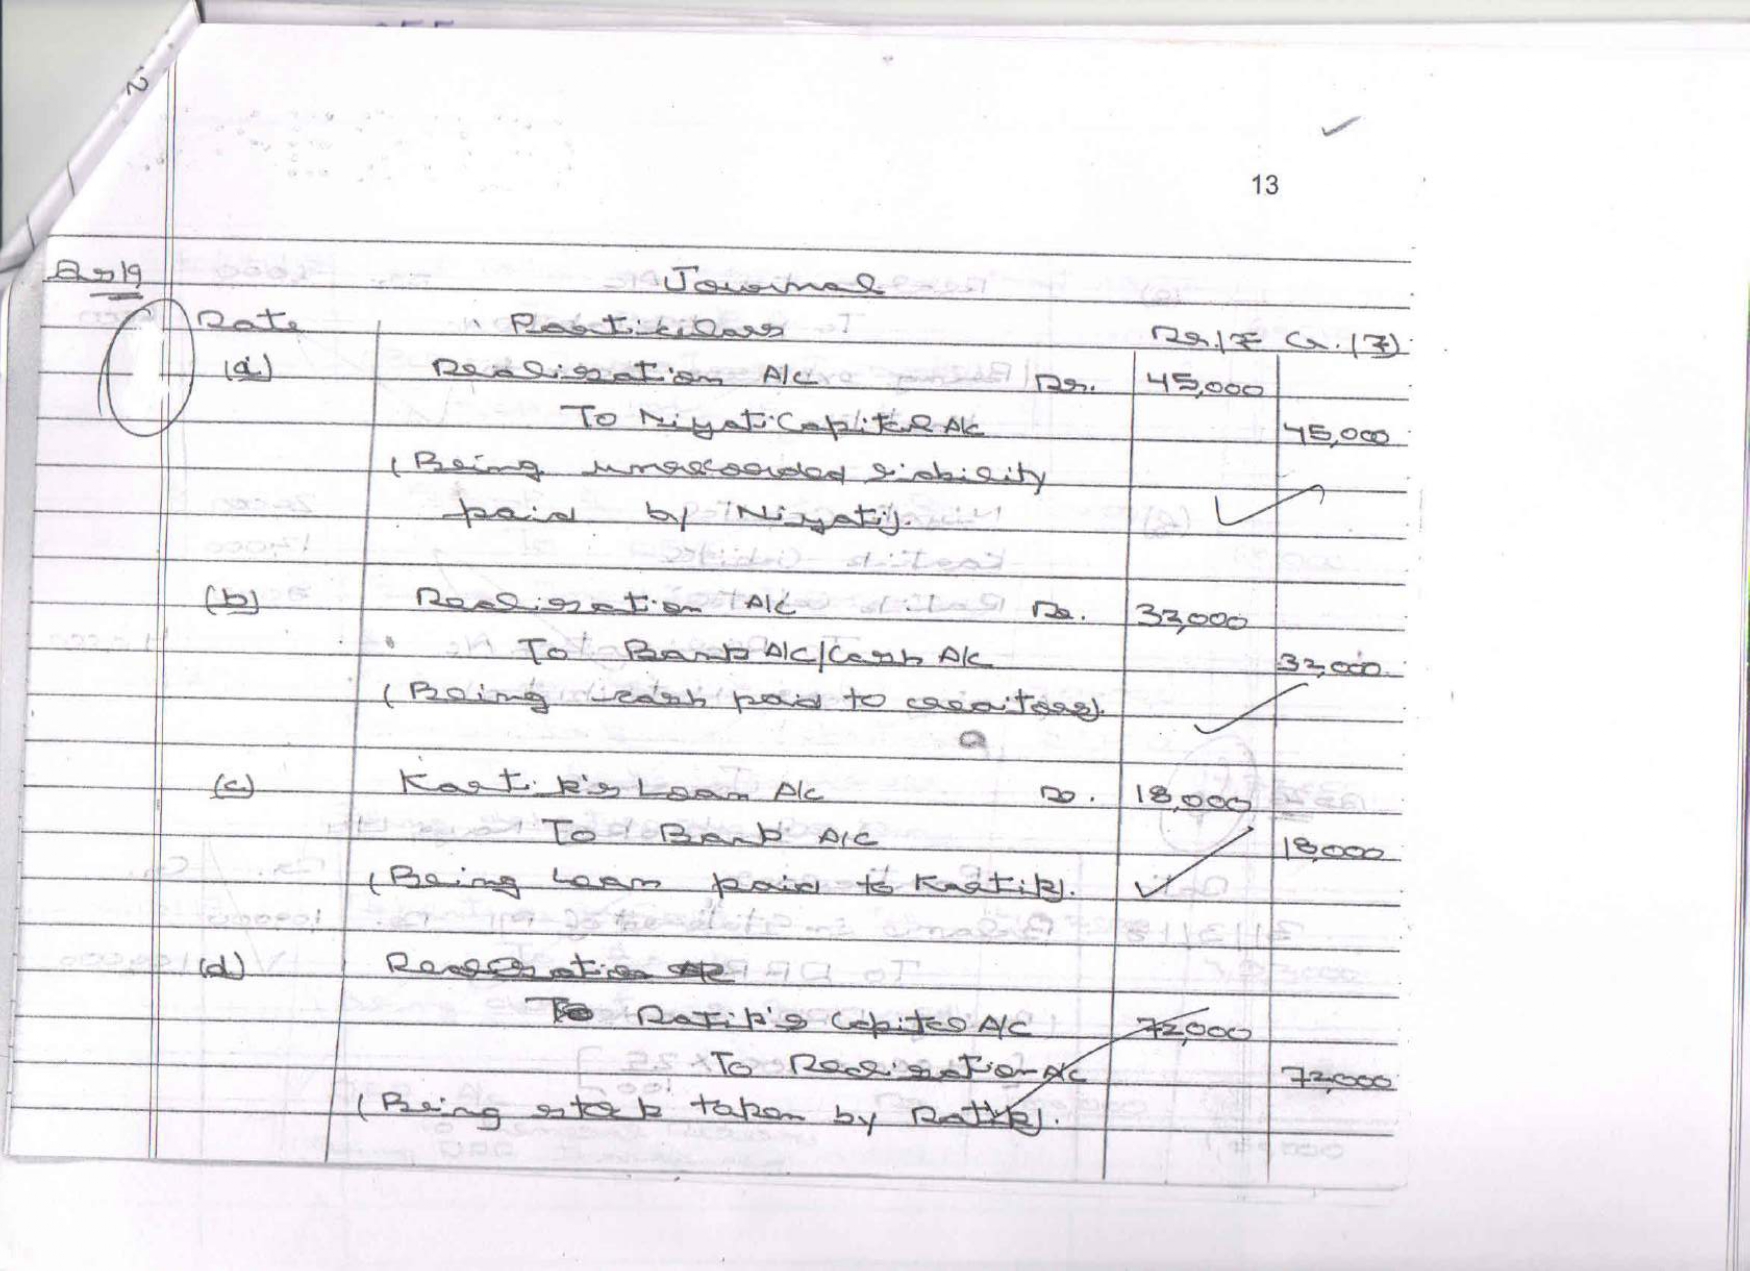 13
Ans 19
Journal
Date Particulars Dr. (₹) Cr. (₹)
(a) Realisation A/c Dr. 45,000
To Niyati Capital A/c 45,000
(Being unrecorded liability
paid by Niyati).
(b) Realisation A/c Dr. 33,000
To Bank A/c/Cash A/c 33,000
(Being cash paid to creaitors).
(c) Kartik's Loan A/c Dr. 18,000
To Bank A/c 18,000
(Being Loan paid to Kartik).
(d)
Ratik's Capital A/c 72,000
To Realisation A/c 72,000
(Being stock taken by Ratik).